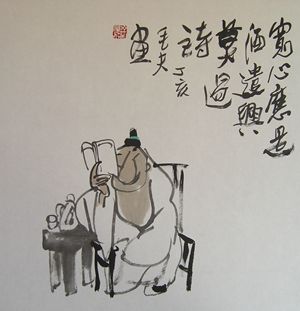 寬心應是
酒遣興
莫過
詩丁亥
畫